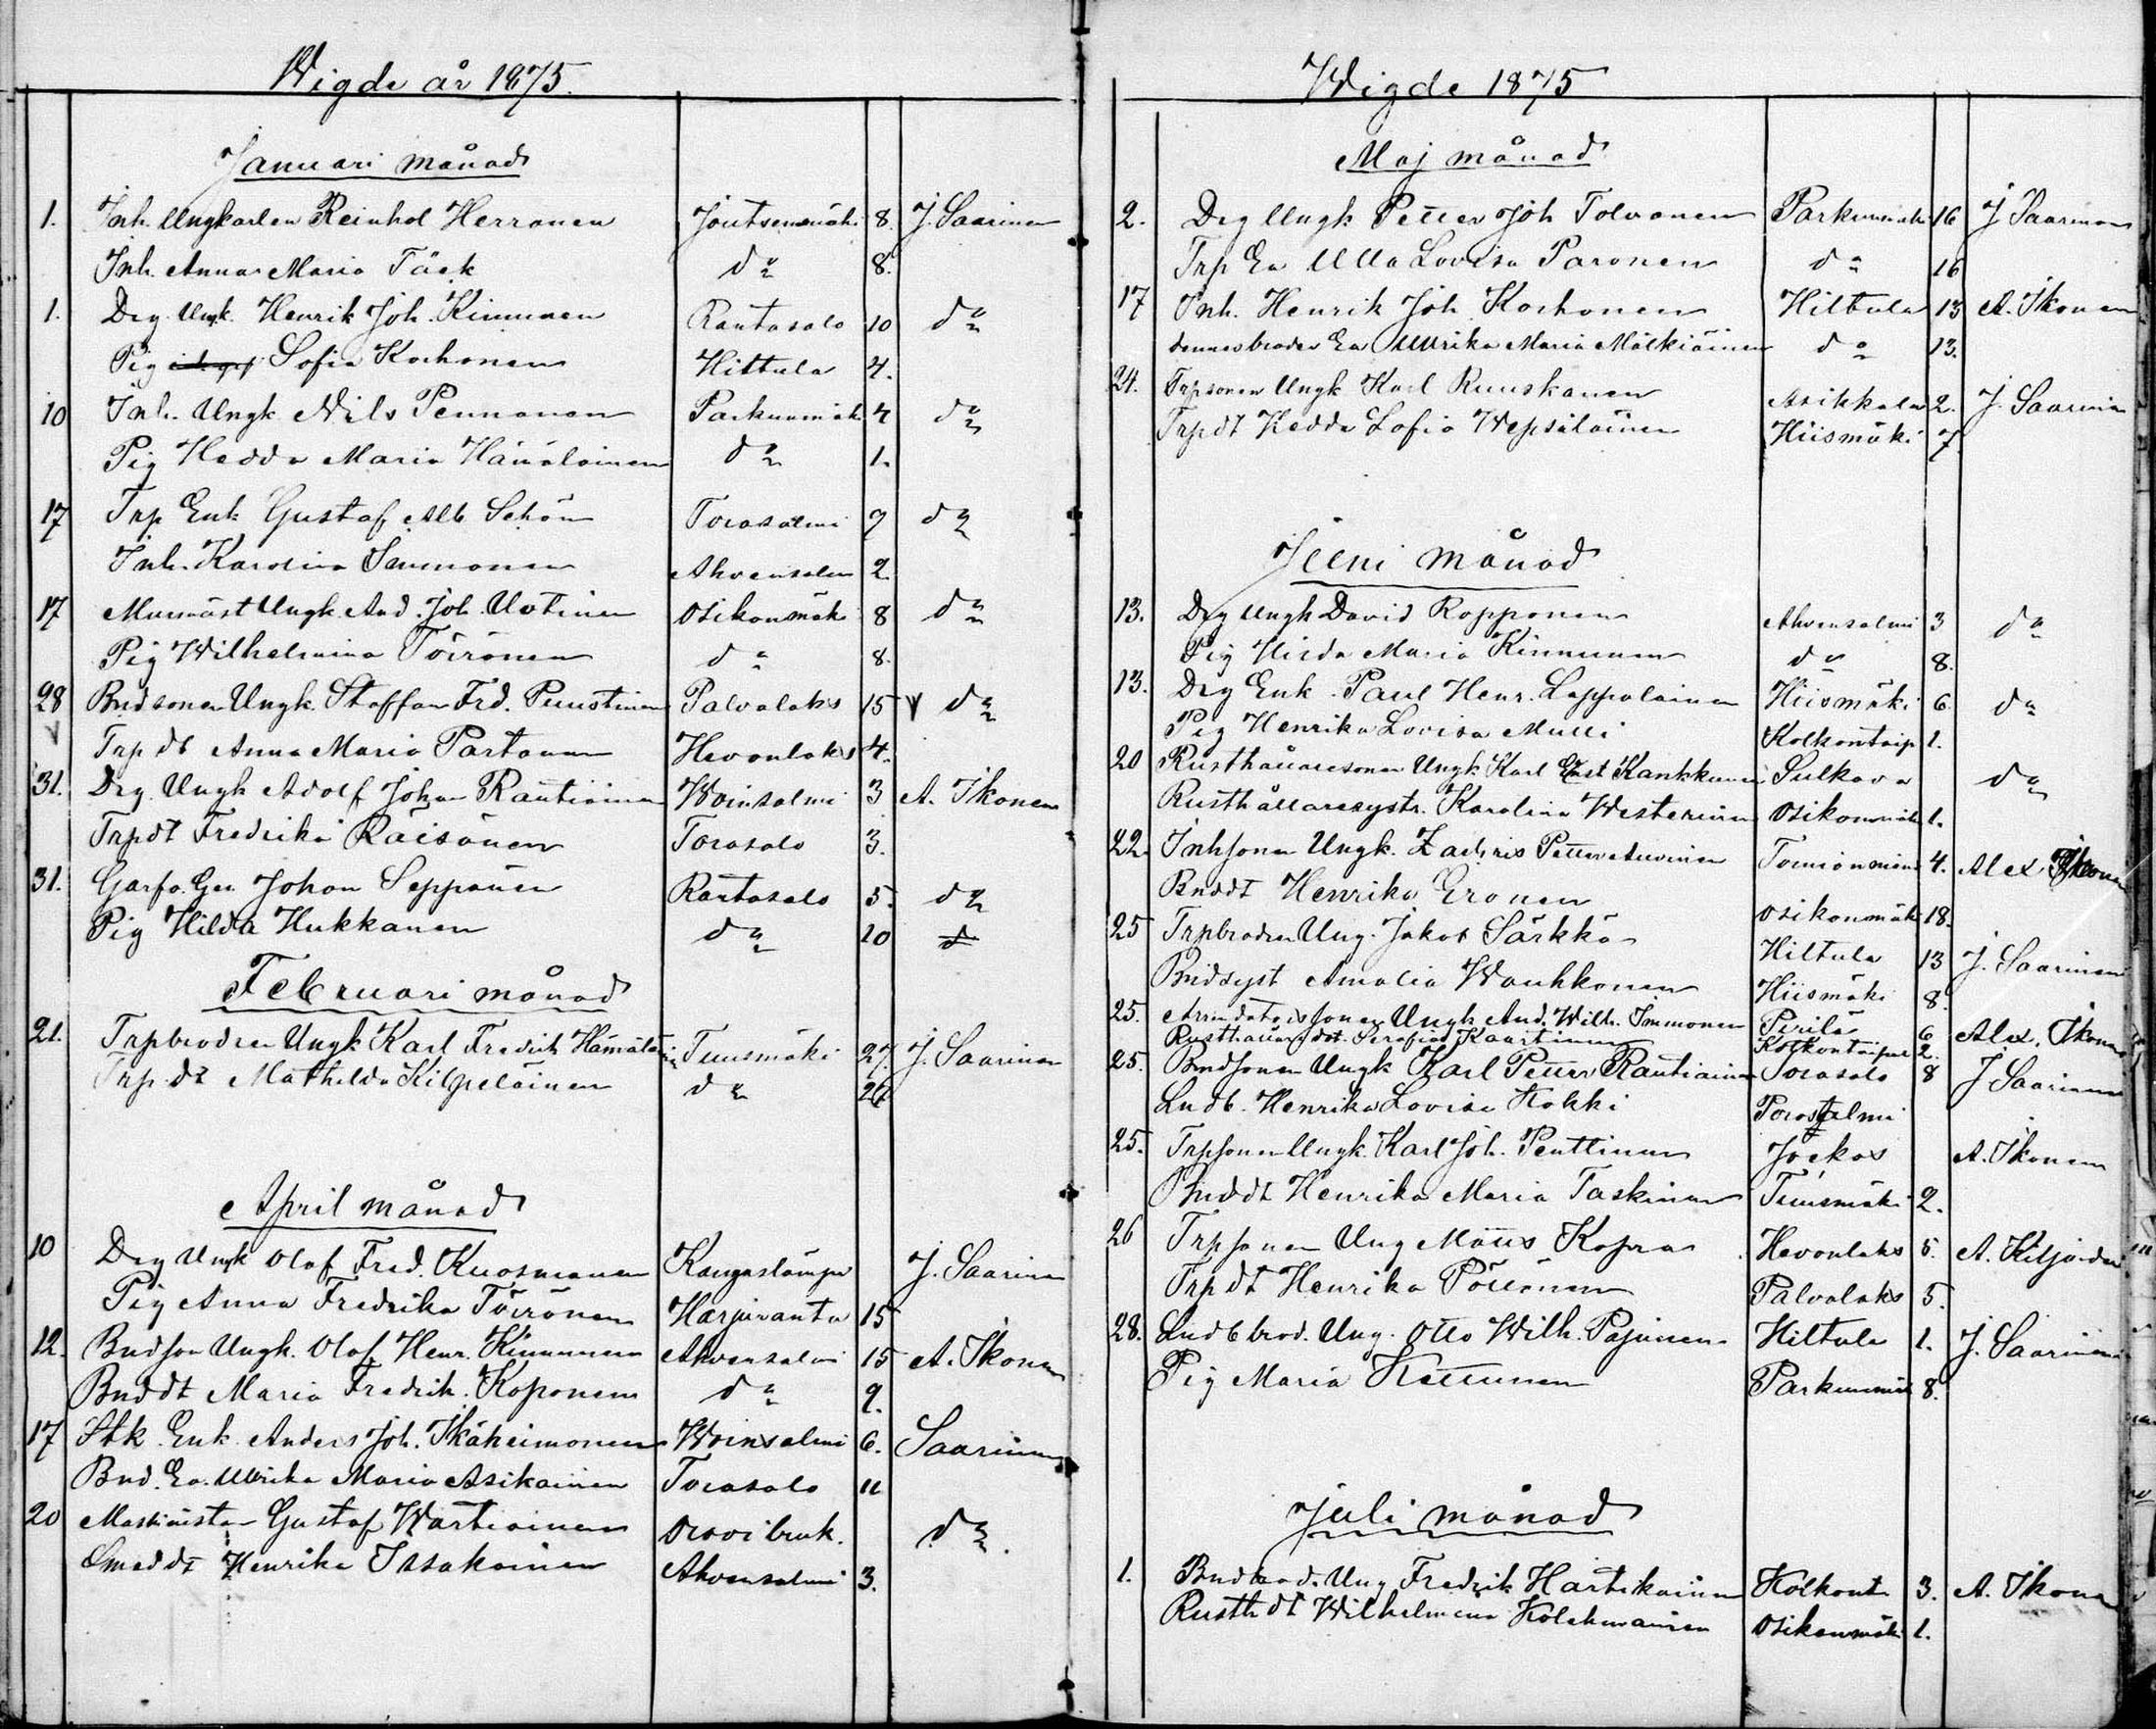 Wigde år 1875.
Januari månad
1. Inh. Ungkarlen Reinhol Herranen Joutsenmäki 8. J. Saarinen
Inh. Anna Maria Täck do 8.
1. Drg. Ungk. Henrik Joh. Kinnunen Rantasalo 10 do
Pig Sofia Korhonen Hiltula 4.
10 Inh. Ungk Nils Pennanen Parkunmäk 4 do
Pig Hedda Maria Hämäläinen do 1.
17 Trp Enk Gustaf Alb Schön Torasalmi 9 do
Inh. Karolina Immonen Ahvensalm 2.
17 Ungk. And. Joh. Uotinen Osikonmäk 8 do
Pig Wilhelmina Töirönen do 8.
28 Bndsonen Ungk. Staffan Frd. Puustinen Palvalaks 15 do
Trp dt Anna Maria Partanen Hevonlaks 4.
31. Drg. Ungk Adolf Johan Rautiainen Woinsalmi 3 A. Ikonen
Trpdt Fredrika Räisänen Torasalo 3.
31. Johan Seppänen Rantasalo 5. do
Pig Hilda Hukkanen do 10
Februari månad
21. Trpbrodren Ungk Karl Fredrik Hämäläin Tuusmäki 27. J. Saarinen
Trp. dt Mathilda Kilpeläinen do 26
April månad
10 Drg Ungk Olof Fred. Kuosmanen Kangaslampi J. Saarinen
Pig Anna Fredrika Töirönen Harjuranta 15
12. Bndson Ungk. Olof Henr. Kinnunen Ahvensalmi 15 A. Ikonen
Bnddt Maria Fredrik. Koponen do 9.
17 Stk Enk Anders Joh. Ikäheimonen Woinsalmi 6. Saarinen
Bnd. Ea. Ulrika Maria Asikainen Torasalo 11
20 Maskinisten Gustaf Wartiainen Oravi bruk. do.
Smed dt Henrika Issakainen Ahvensalmi 3.
Wigde 1875
Maj månad
2. Drg Ungk Petter Joh Tolvanen Parkunmäk 16 J Saarinen
Trp Ea Ulla Lovisa Paronen do 16
17 Inh. Henrik Joh. Korhonen Hiltula 13 A. Ikonen
dennes broder Ea Ulrika Maria Mälkiäinen do 13.
24. Trpsonen Ungk Karl Ruuskanen Asikkala 2. J. Saarinen
Trpdt Hedda Sofia Wepsäläinen Hiismäki 7.
Juni månad
13. Drg Ungk David Ropponen Ahvensalmi 3 do
Pig Hilda Maria Kinnunen do 8.
13. Drg Enk. Paul Henr. Lappalainen Hiismäki 6. do
Pig Henrika Lovisa Mulli Kolkontaip 1.
20 Rusthållaresonen Ungk Karl Ernst Kankkunen Sulkava do
Rusthållaresystr. Karolina Westerinen Osikonmäki 1.
22. Inhsonen Ungk. Zachris Petter Auvinen 4. Alex Ikonen
Bnddt Henrika Eronen Osikonmäk 18.
25 Trpbrodren Ung. Jakob Särkkä Hiltula 13 J. Saarinen
Bndsyst Amalia Wauhkonen Hiismäki 8.
25. Arrendators sonen Ungk And. Wilh. Immonen Pirilä 6 Alex. Ikonen
Rusthållare dot. Serafia Kaartinen Kolkontaipal 2.
25. Bndsonen Ungk Karl Petter Rautiainen Torasalo 8 J Saarinen
Lndb. Henrika Lovisa Kokki Porosalmi
25. Trpsonen Ungk. Karl Joh. Penttinen Jockas A. Ikonen
Bnddt Henrika Maria Taskinen Tuusmäki 2.
26 Trpsonen Ung Måns Kopra Hevonlaks 5. A. Kiljander
Trp dt Henrika Pöllänen Palvalaks 5.
28. Lndb brod. Ung. Otto Wilh. Pajunen Hiltula 1. J. Saarinen
Pig Maria Kettunen Parkunmäk 8.
Juli månad
1. Bndbrod. Ung Fredrik Hartikainen Kolkont 3. A. Ikonen
Rusth dt Wilhelmina Kolehmainen Osikonmäki 1.